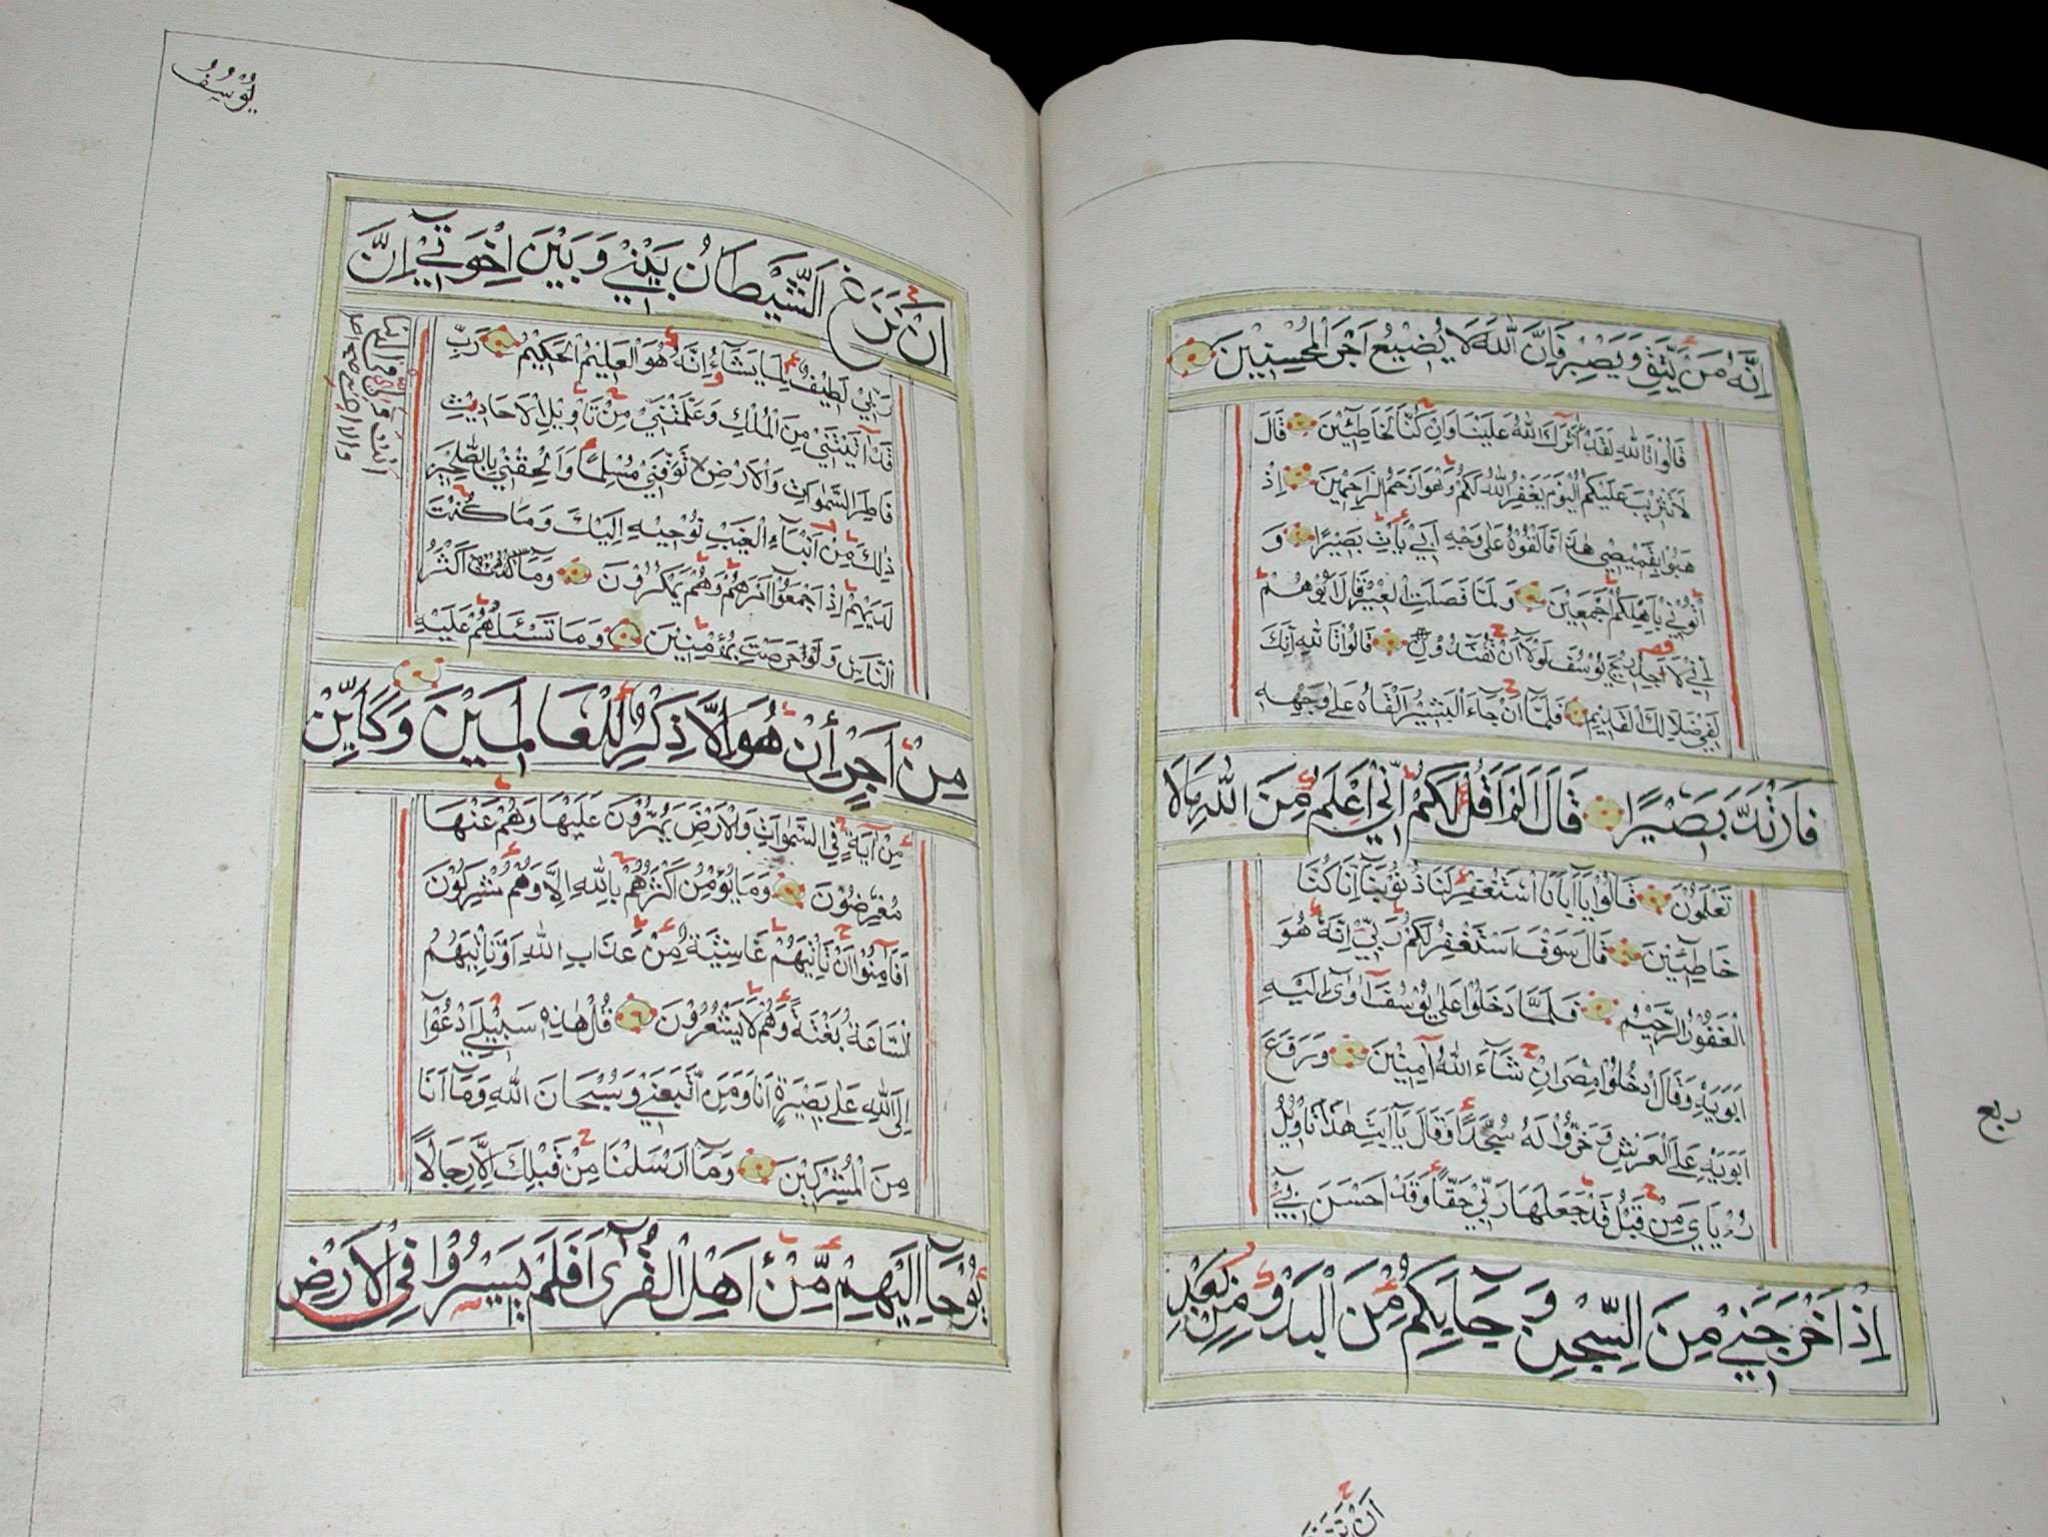 اِنَّهُ مَنْ يَتَّقِ وَيَصْبِرْ فَاِنَّ اللّٰهَ لَا يُضِيْعُ اَجْرَ الْمُحْسِنِيْنَ
قَالُوْا تَاللّٰهِ لَقَدْ اٰثَرَكَ اللّٰهُ عَلَيْنَا وَاِنْ كُنَّا لَخَاطِئِيْنَ قَالَ
لَا تَثْرِيْبَ عَلَيْكُمُ الْيَوْمَ يَغْفِرُ اللّٰهُ لَكُمْ وَهُوَ اَرْحَمُ الرَّاحِمِيْنَ اِذْ
هَبُوْا بِقَمِيْصِيْ هٰذَا فَاَلْقُوْهُ عَلٰى وَجْهِ اَبِيْ يَأْتِ بَصِيْرًا وَ
أْتُوْنِيْ بِاَهْلِكُمْ اَجْمَعِيْنَ وَلَمَّا فَصَلَتِ الْعِيْرُ قَالَ اَبُوْهُمْ
اِنِّيْ لَاَجِدُ رِيْحَ يُوْسُفَ لَوْلَا اَنْ تُفَنِّدُوْنِ قَالُوْا تَاللّٰهِ اِنَّكَ
لَفِيْ ضَلَالِكَ الْقَدِيْمِ فَلَمَّا اَنْ جَاءَ الْبَشِيْرُ اَلْقَاهُ عَلٰى وَجْهِهِ
فَارْتَدَّ بَصِيْرًا قَالَ اَلَمْ اَقُلْ لَكُمْ اِنِّيْ اَعْلَمُ مِنَ اللّٰهِ مَالَا
تَعْلَمُوْنَ قَالُوْا يَا اَبَانَا اسْتَغْفِرْ لَنَا ذُنُوْبَنَا اِنَّا كُنَّا
خَاطِئِيْنَ قَالَ سَوْفَ اَسْتَغْفِرُ لَكُمْ رَبِّيْ اِنَّهُ هُوَ
الْغَفُوْرُ الرَّحِيْمُ فَلَمَّا دَخَلُوْا عَلٰى يُوْسُفَ اٰوٰى اِلَيْهِ
اَبَوَيْهِ وَقَالَ ادْخُلُوْا مِصْرَ اِنْ شَاءَ اللّٰهُ اٰمِنِيْنَ وَرَفَعَ
اَبَوَيْهِ عَلَى الْعَرْشِ وَخَرُّوْا لَهُ سُجَّدًا وَقَالَ يَا اَبَتِ هٰذَا تَأْوِيْلُ
رُؤْيَايَ مِنْ قَبْلُ قَدْ جَعَلَهَا رَبِّيْ حَقًّا وَقَدْ اَحْسَنَ بِيْ
اِذْ اَخْرَجَنِيْ مِنَ السِّجْنِ وَجَاءَ بِكُمْ مِنَ الْبَدْوِ مِنْ بَعْدِ
ربع
اَنْ نَزَغَ
يُوْسُفُ
اَنْ نَزَغَ الشَّيْطَانُ بَيْنِيْ وَبَيْنَ اِخْوَتِيْ اِنَّ
رَبِّيْ لَطِيْفٌ لِمَا يَشَاءُ اِنَّهُ هُوَ الْعَلِيْمُ الْحَكِيْمُ رَبِّ
قَدْ اٰتَيْتَنِيْ مِنَ الْمُلْكِ وَعَلَّمْتَنِيْ مِنْ تَأْوِيْلِ الْاَحَادِيْثِ
فَاطِرَ السَّمٰوَاتِ وَالْاَرْضِ تَوَفَّنِيْ مُسْلِمًا وَاَلْحِقْنِيْ بِالصّٰلِحِيْنَ
اَنْتَ وَلِيِّيْ فِي الدُّنْيَا
وَالْاٰخِرَةِ صح
ذٰلِكَ مِنْ اَنْبَاءِ الْغَيْبِ نُوْحِيْهِ اِلَيْكَ وَمَا كُنْتَ
لَدَيْهِمْ اِذْ اَجْمَعُوْا اَمْرَهُمْ وَهُمْ يَمْكُرُوْنَ وَمَا اَكْثَرُ
النَّاسِ وَلَوْ حَرَصْتَ بِمُؤْمِنِيْنَ وَمَا تَسْئَلُهُمْ عَلَيْهِ
مِنْ اَجْرٍ اِنْ هُوَ اِلَّا ذِكْرٌ لِلْعَالَمِيْنَ وَكَاَيِّنْ
مِنْ اٰيَةٍ فِي السَّمٰوَاتِ وَالْاَرْضِ يَمُرُّوْنَ عَلَيْهَا وَهُمْ عَنْهَا
مُعْرِضُوْنَ وَمَا يُؤْمِنُ اَكْثَرُهُمْ بِاللّٰهِ اِلَّا وَهُمْ مُشْرِكُوْنَ
اَفَاَمِنُوْا اَنْ تَأْتِيَهُمْ غَاشِيَةٌ مِنْ عَذَابِ اللّٰهِ اَوْ تَأْتِيَهُمُ
السَّاعَةُ بَغْتَةً وَهُمْ لَا يَشْعُرُوْنَ قُلْ هٰذِهِ سَبِيْلِيْ اَدْعُوْا
اِلَى اللّٰهِ عَلٰى بَصِيْرَةٍ اَنَا وَمَنِ اتَّبَعَنِيْ وَسُبْحَانَ اللّٰهِ وَمَا اَنَا
مِنَ الْمُشْرِكِيْنَ وَمَا اَرْسَلْنَا مِنْ قَبْلِكَ اِلَّا رِجَالًا
يُوْحَا اِلَيْهِمْ مِنْ اَهْلِ الْقُرٰى اَفَلَمْ يَسِيْرُوْا فِي الْاَرْضِ